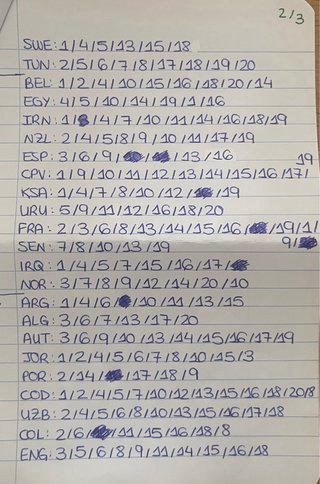 2/3
SWE: 1/4/5/13/15/18
TUN: 2/5/6/7/8/17/18/19/20
BEL: 1/2/4/10/15/16/18/20/14
EGY: 4/5/10/14/19/1/16
IRN: 1/4/7/10/11/14/16/18/19
NZL: 2/4/5/8/9/10/11/17/19
ESP: 3/6/9/13/16
CPV: 1/9/10/11/12/13/14/15/16/17/19
KSA: 1/4/7/8/10/12/19
URU: 5/9/11/12/16/18/20
FRA: 2/3/6/8/13/14/15/16/19/1/
SEN: 7/8/10/13/19 9/
IRQ: 1/4/5/7/15/16/17/
NOR: 3/7/8/9/12/14/20/10
ARG: 1/4/6/10/11/13/15
ALG: 3/6/7/13/17/20
AUT: 3/6/9/10/13/14/15/16/17/19
JOR: 1/2/4/5/6/7/8/10/15/3
POR: 2/14/17/18/9
COD: 1/2/4/5/7/10/12/13/15/16/18/20/8
UZB: 2/4/5/6/8/10/13/15/16/17/18
COL: 2/6/11/15/16/18/8
ENG: 3/5/6/8/9/11/14/15/16/18